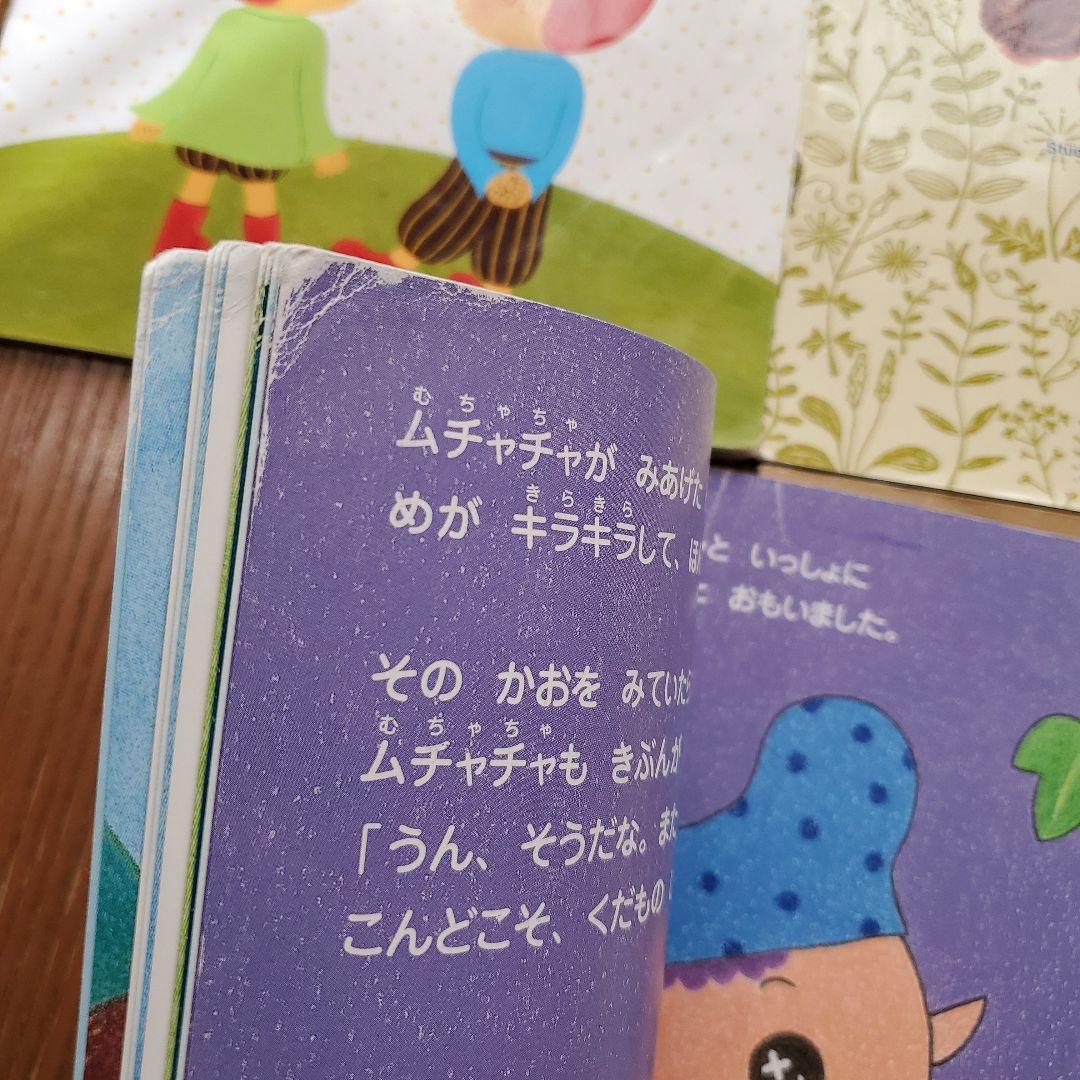 むちゃちゃ
ムチャチャが みあげた
きらきら
めが キラキラして、
その かおを みていたら
むちゃちゃ
ムチャチャも きぶんが
「うん、 そうだな。 また
こんどこそ、 くだもの
と いっしょに
おもいました。